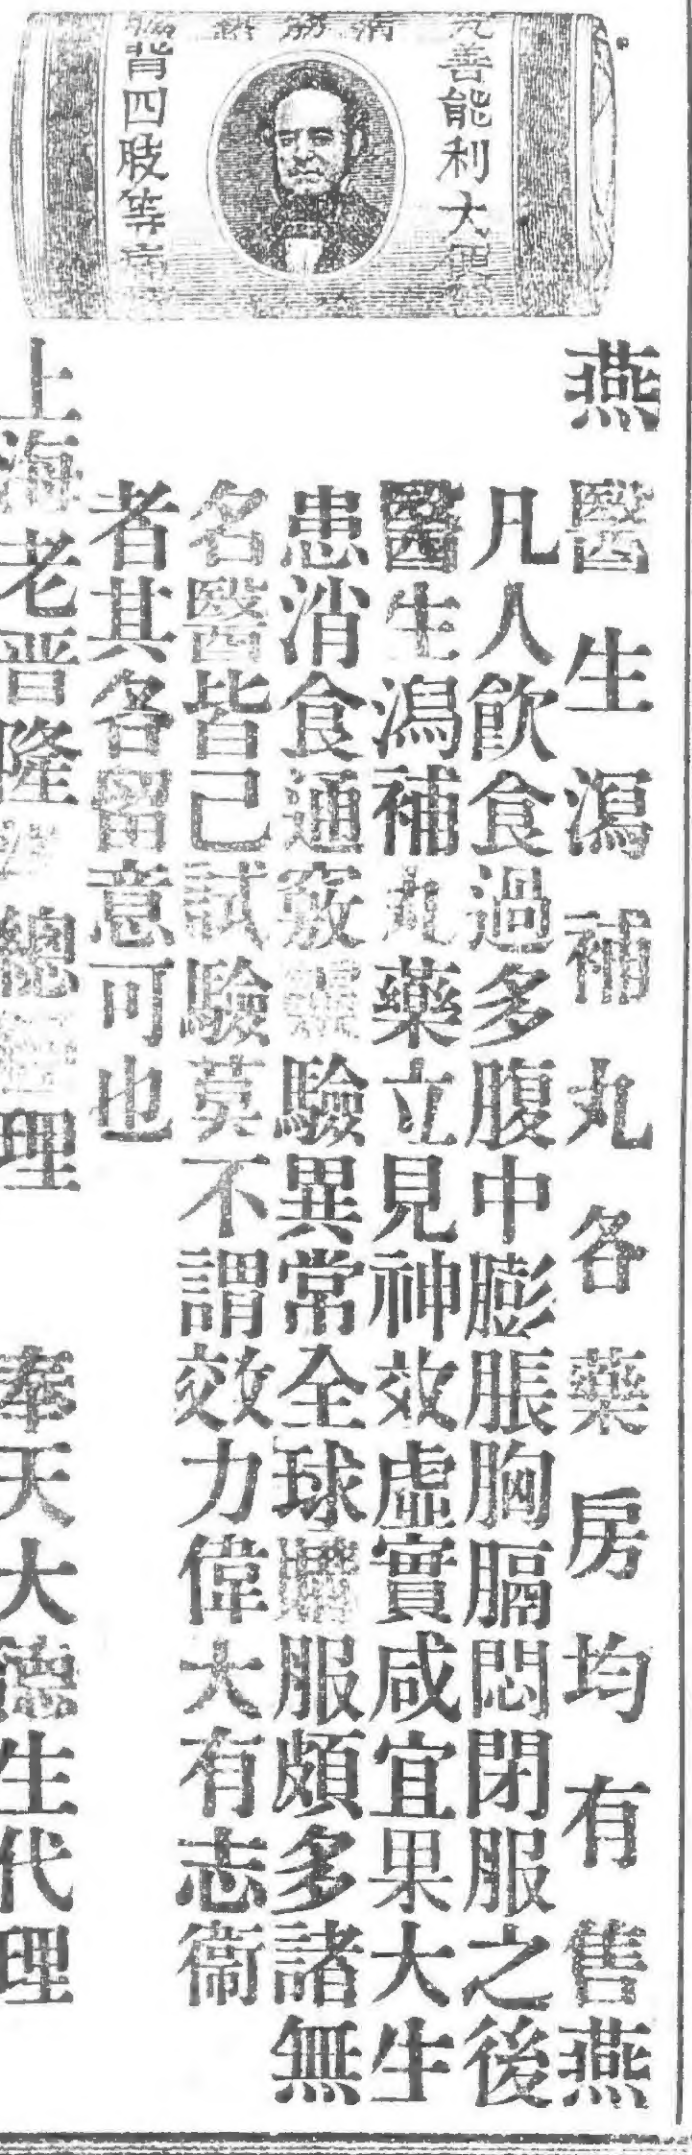 善能利大便
背四肢等病
燕醫生瀉補丸各藥房均有售燕
凡人飲食過多腹中膨脹胸膈悶閉服之後
醫生瀉補丸藥立見神效虛實咸宜果大生
患消食通竅靈驗異常全球購服頗多諸無
名醫皆己試驗莫不謂效力偉大有志衞
者其各留意可也
上海老晋隆洋總經理　奉天大德生代理